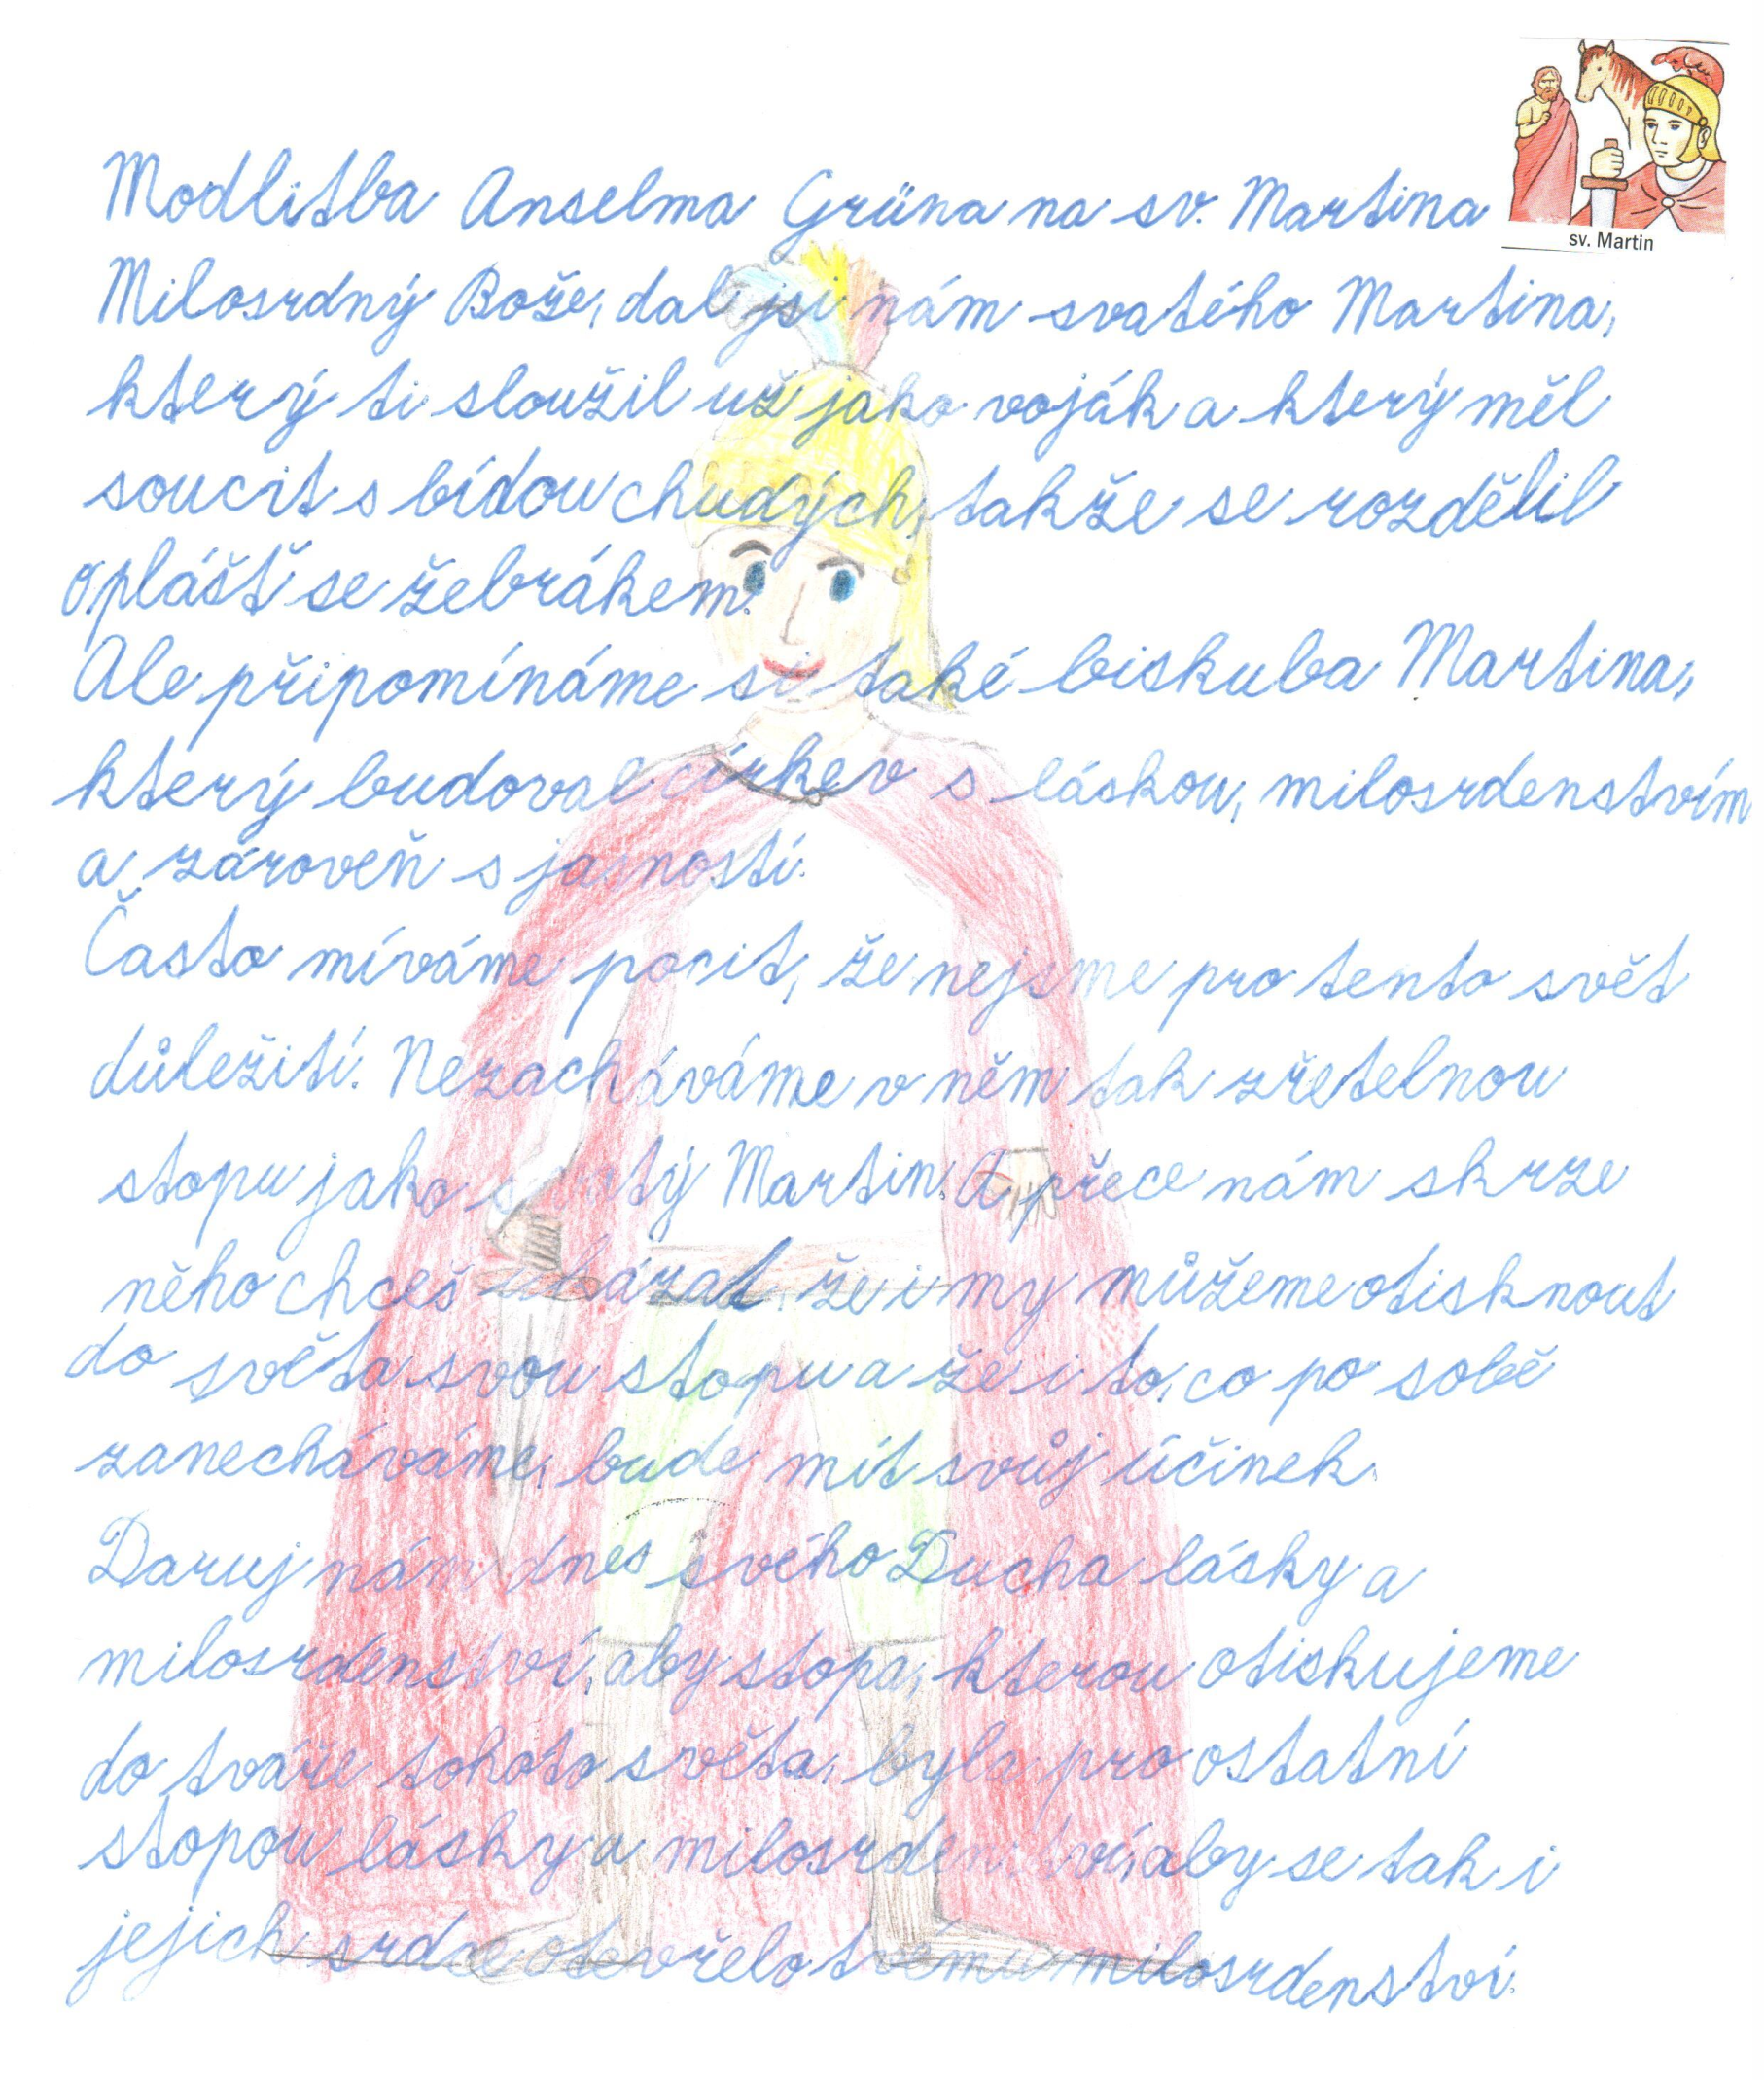 Modlitba Anselma Grüna na sv. Martina
sv. Martin
Milosrdný Bože, dal jsi nám svatého Martina,
který ti sloužil už jako voják a který měl
soucit s bídou chudých, takže se rozdělil
o plášť se žebrákem.
Ale připomínáme si také biskuba Martina,
který budoval církev s láskou, milosrdenstvím
a zároveň s jasností.
Často míváme pocit, že nejsme pro tento svět
důležití. Nezacháváme v něm tak zřetelnou
stopu jako svatý Martin. A přece nám skrze
něho chceš ukázat, že i my můžeme otisknout
do světa svou stopu a že i to, co po sobě
zanecháváme, bude mít svůj účinek.
Daruj nám dnes svého Ducha lásky a
milosrdenství, aby stopa, kterou otiskujeme
do tváře tohoto světa, byla pro ostatní
stopou lásky a milosrdenství, aby se tak i
jejich srdce otevřelo tvému milosrdenství.